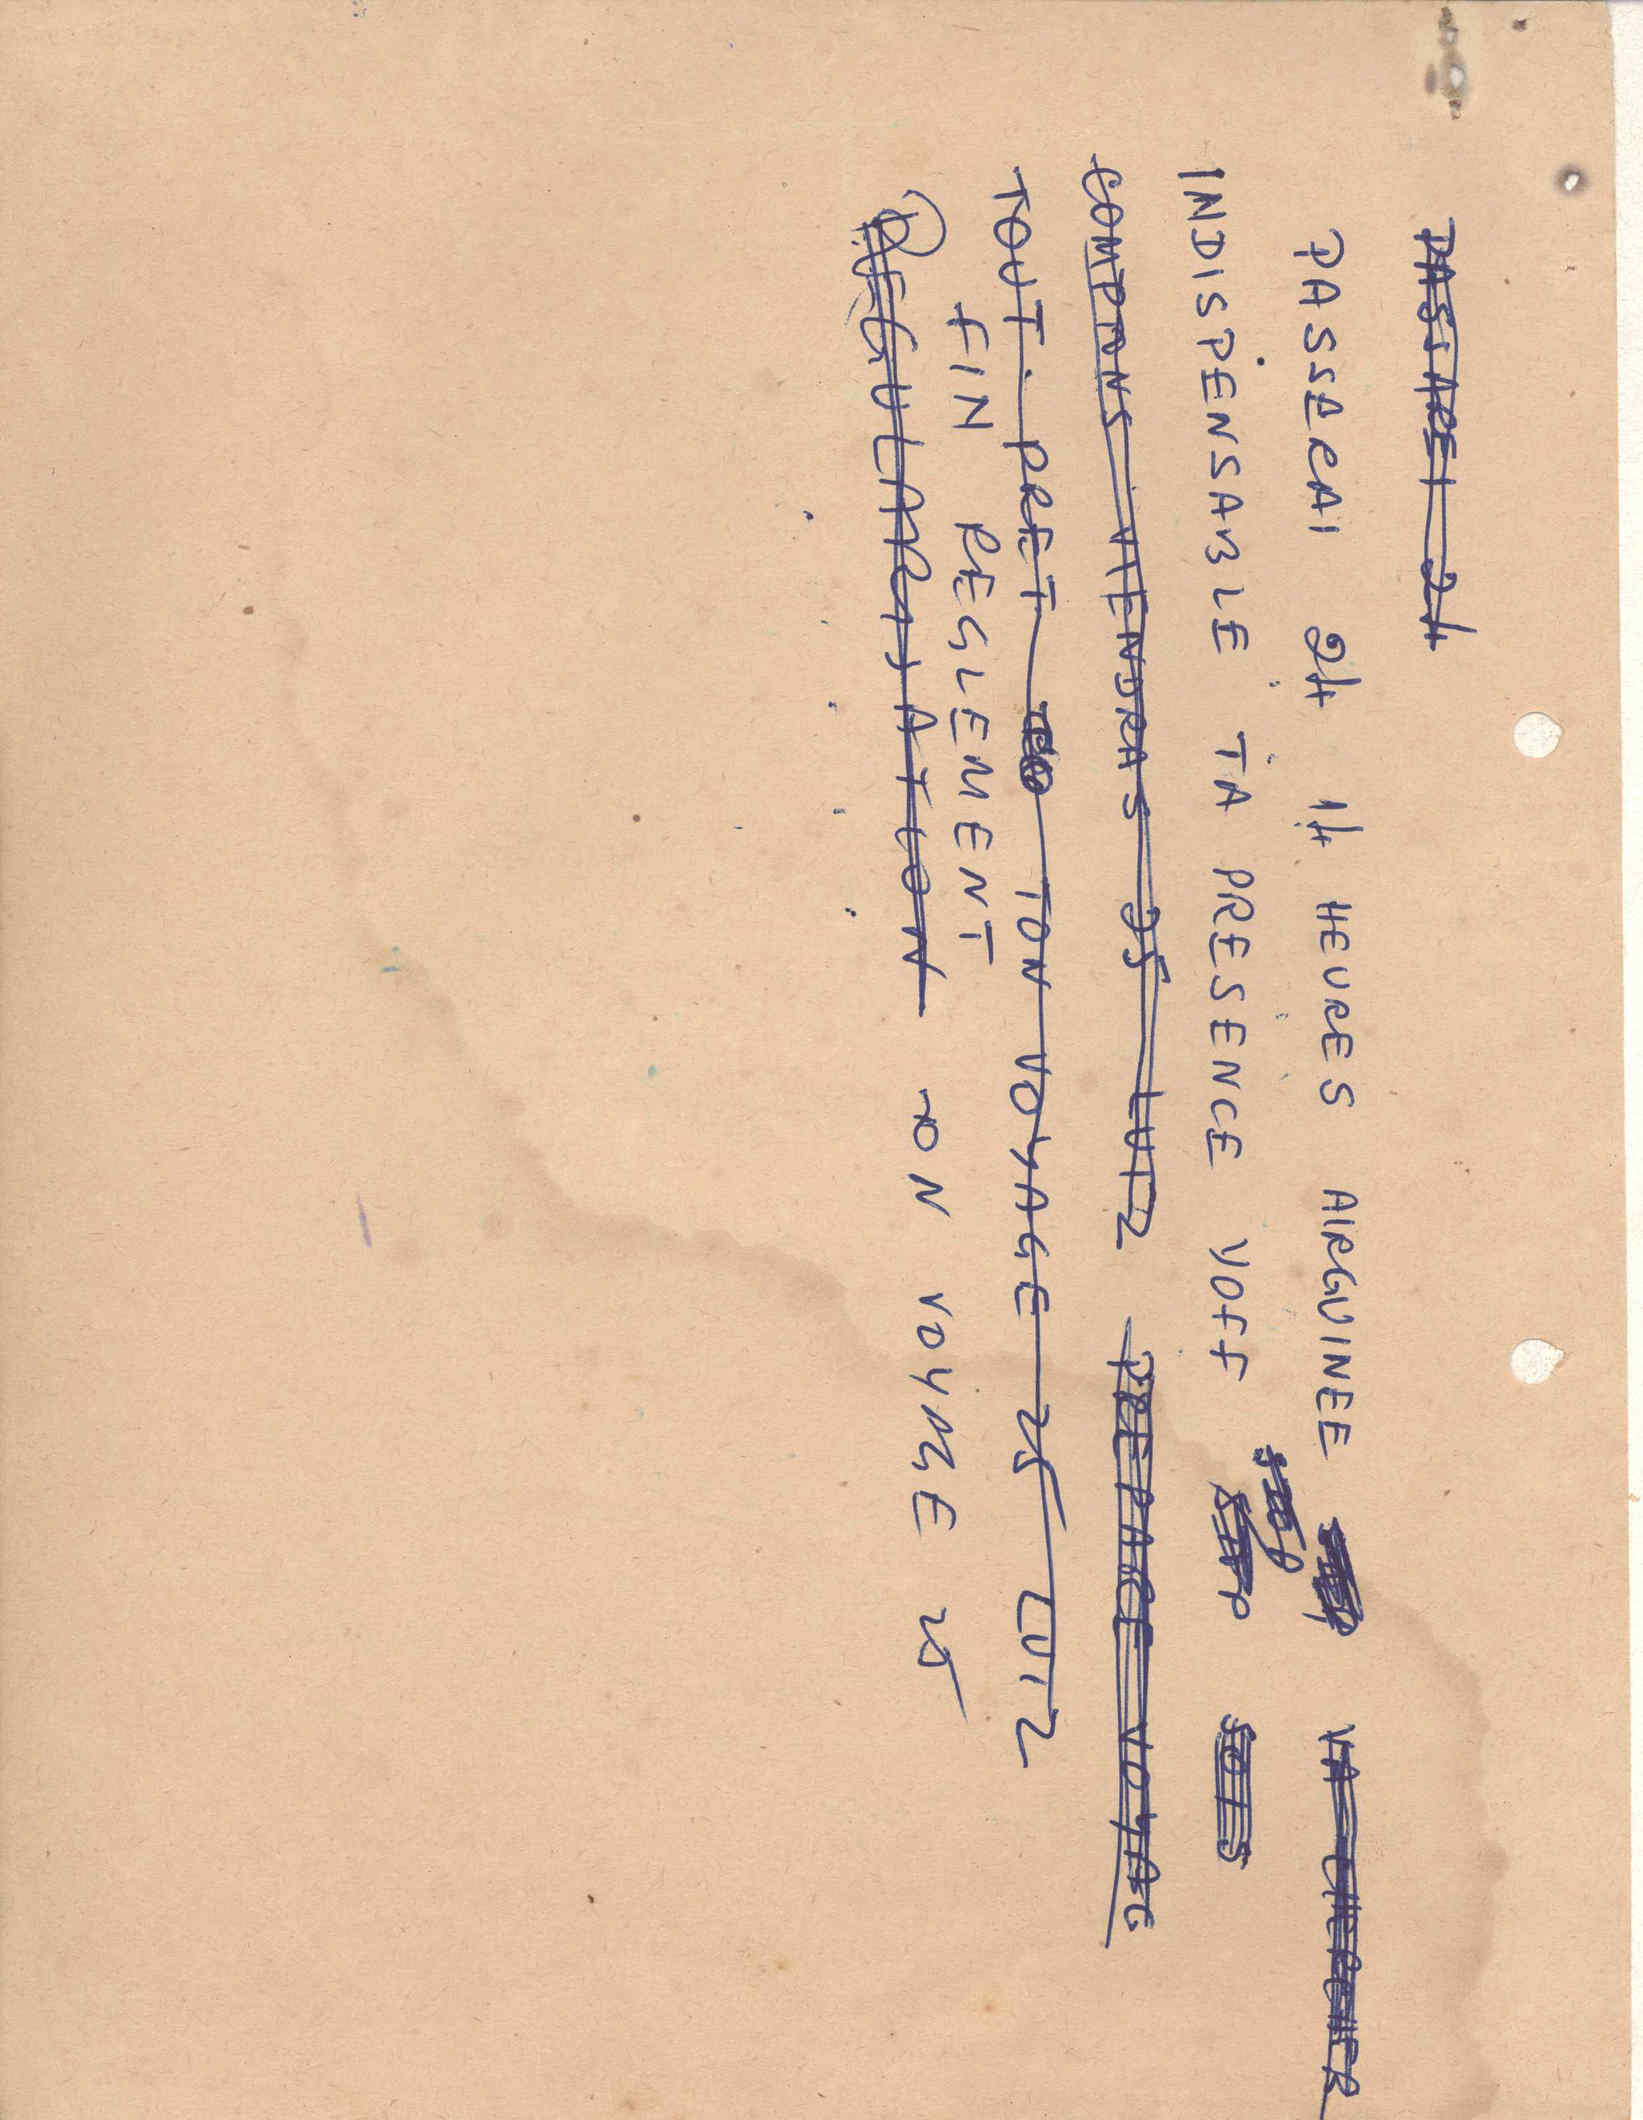 PASSAREI 24
PASSERAI 24 14 HEURES AIRGUINEE VA CHERCHER
INDISPENSABLE TA PRESENCE VOFF
COMPTONS VIENDRAS 25 LUTZ PREPARE VOYAGE
TOUT PRET TON VOYAGE 25 LUTZ
FIN REGLEMENT
REGULARISATION TON VOYAGE 25